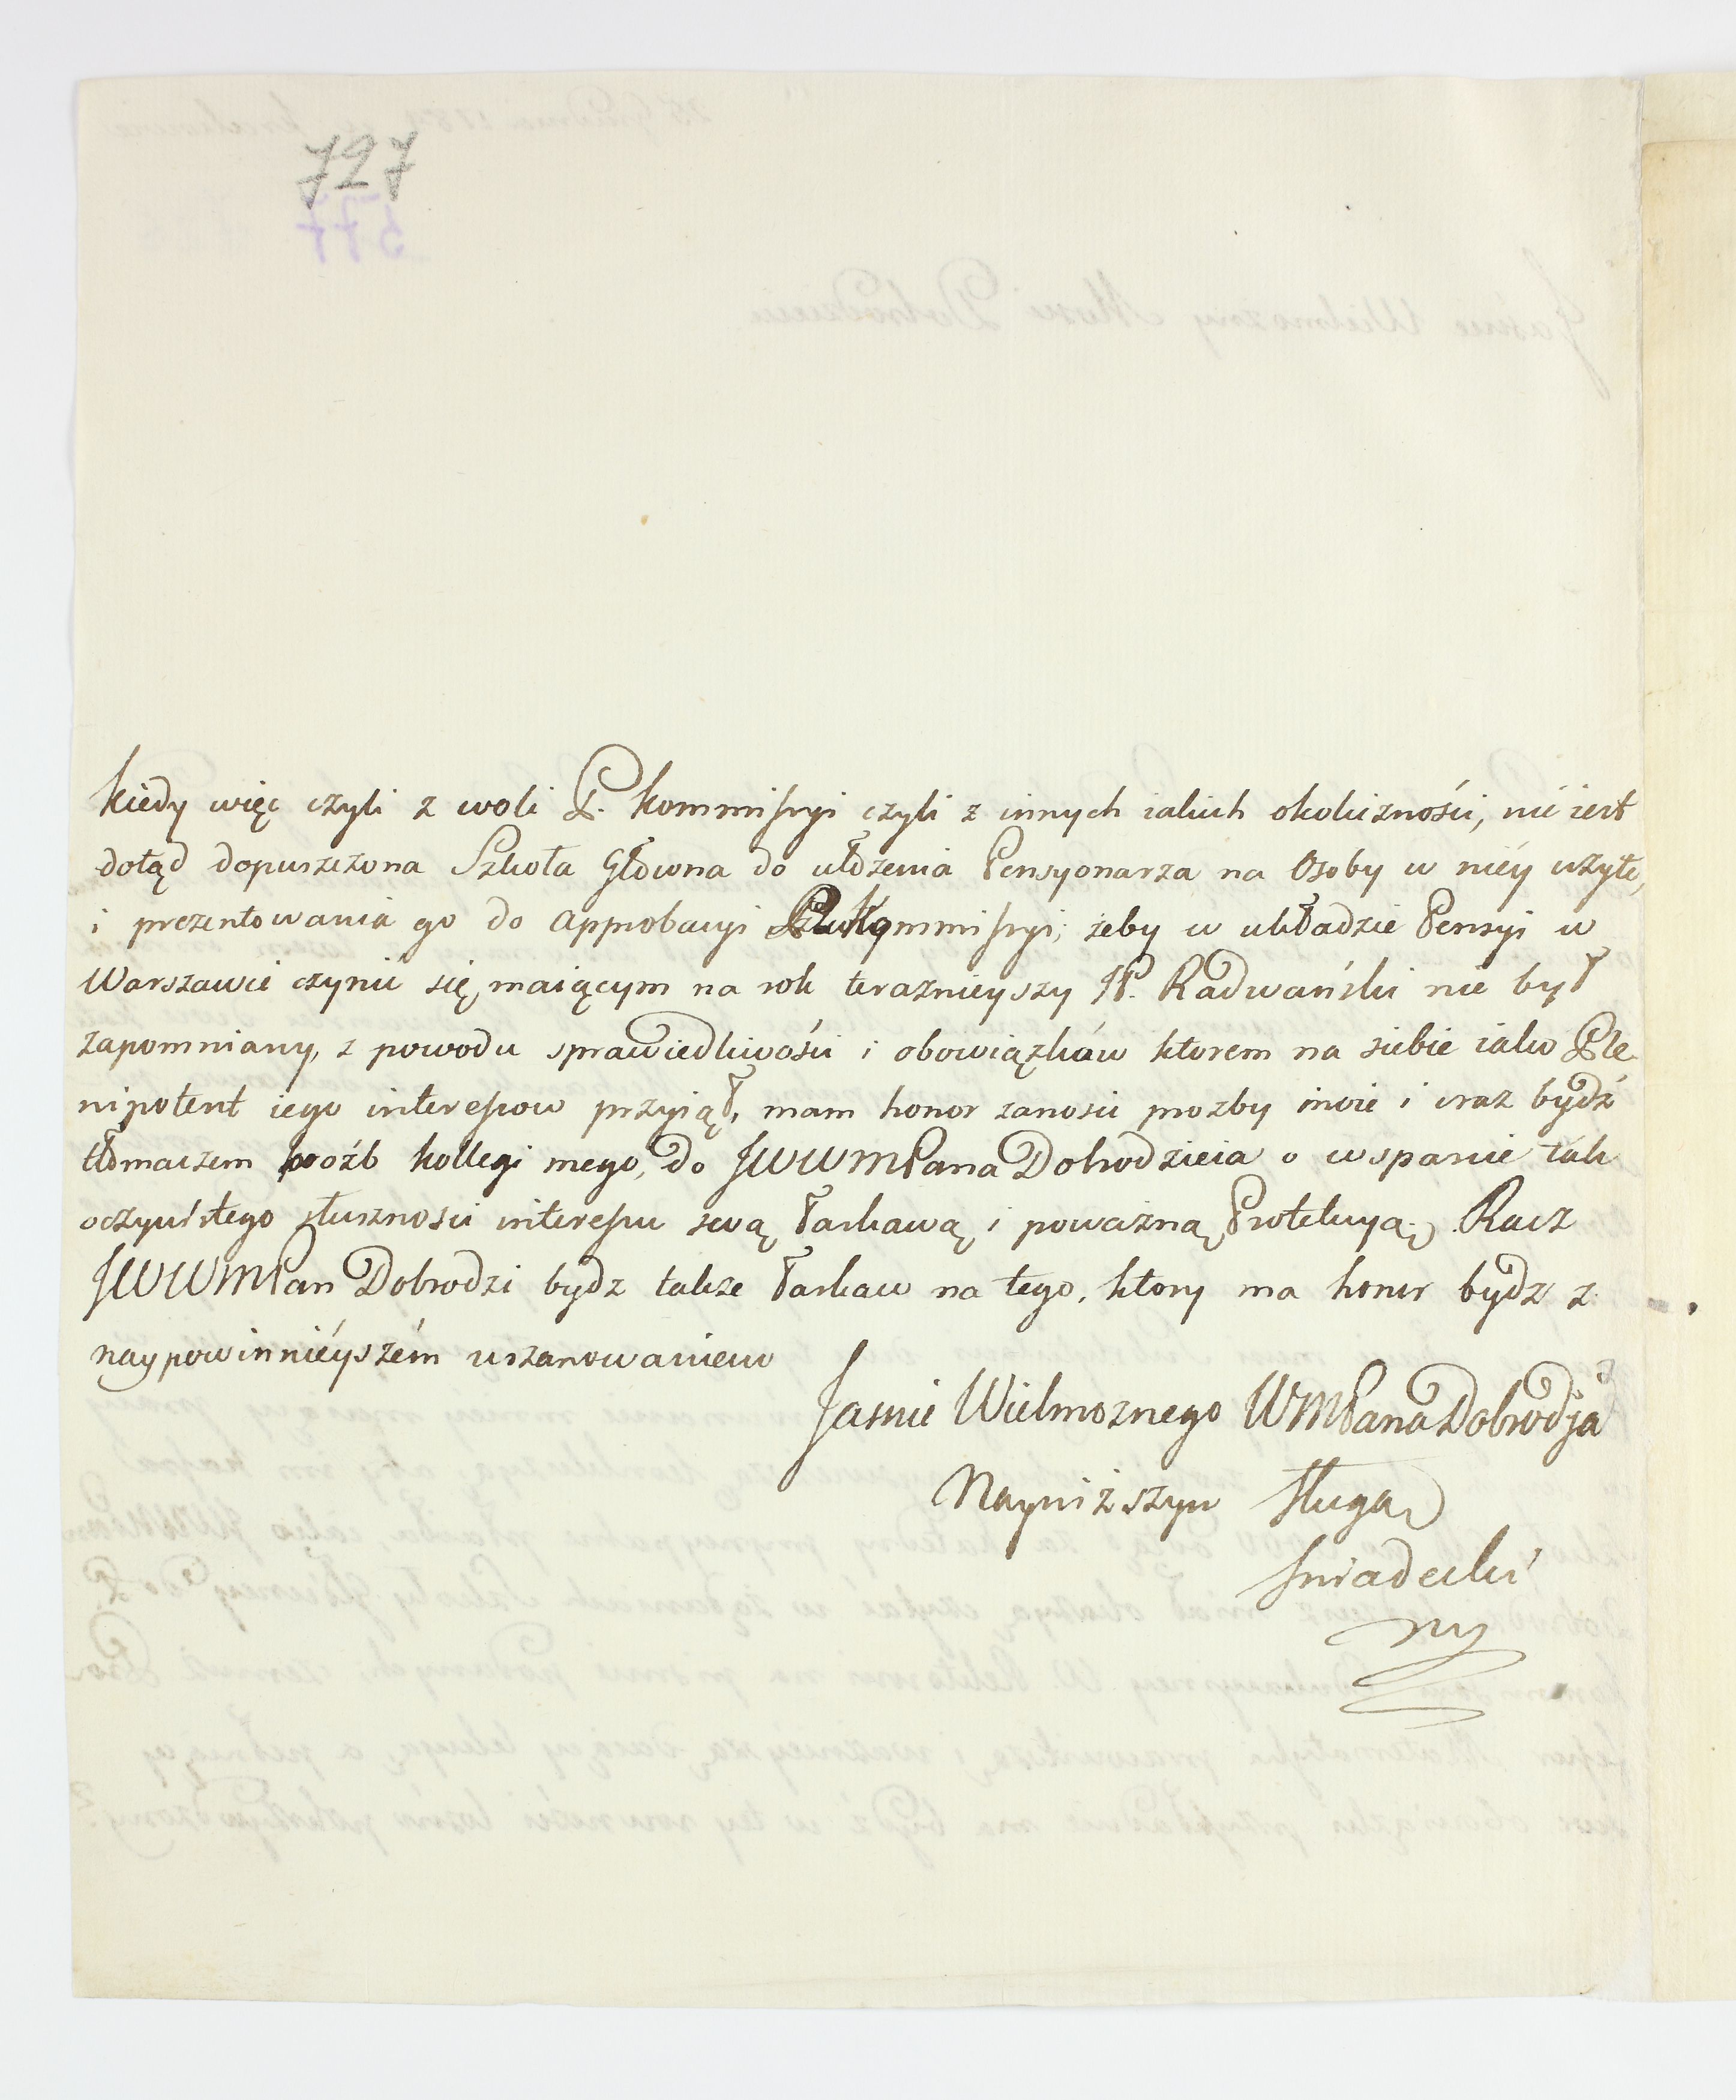 727
577
kiedy więc czyli z woli P. kommissyi czyli z innych iakich okoliczności, nie iest
dotąd dopuszczona Szkoła Główna do ułożenia Pensyonarza na Osoby w niéy użyte,
i prezentowania go do approbacyi kommissyi; żeby w układzie Pensyi w
Warszawie czynić się maiącym na rok terazniéyszy JP. Radwański nie był
zapomniany, z powodu sprawiedliwości i obowiązków ktorem na siebie iako Ple-
nipotent iego interessow przyiął, mam honor zanosić prozby moie i wraz bydź
tłomaczem proźb kollegi mego, do JWWMPana Dobrodzieia o wsparcie tak
oczywistego słuszności interessu swą łaskawą i poważną Protekcyą. Racz
JWWMPan Dobrodzi bydz także łaskaw na tego, ktory ma honor bydz z
naypowinniéyszém uszanowaniem
Jasnie Wielmoznego WMPana Dobrodja
Nayniższym sługą
Sniadecki
mp